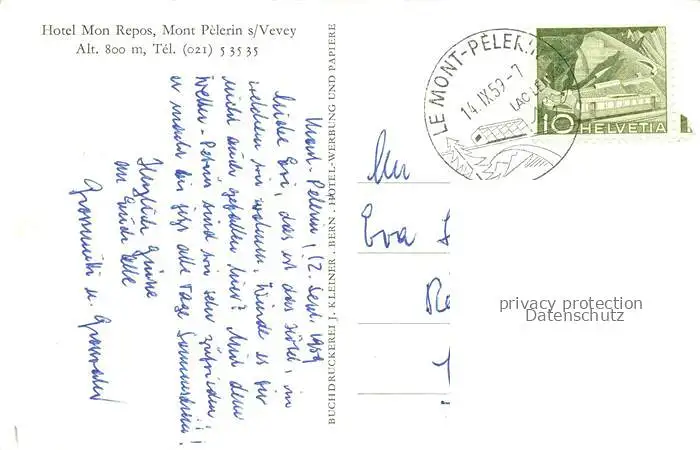 Hotel Mon Repos, Mont Pèlerin s/Vevey
Alt. 800 m, Tél. (021) 5 35 35
Mont-Pelerin, 12. Sept. 1959
Liebe Evi, dies ist das Hotel, in
welchem wir wohnen. Würde es Dir
nicht auch gefallen hier? Mit dem
Wetter-Petrus sind wir sehr zufrieden,
er macht bis jetzt alle Tage Sonnenschein!!
Herzliche Grüsse
an Euch alle
Grossmutti u. Grossvater
BUCHDRUCKEREI J. KLEINER · BERN · HOTEL-WERBUNG UND PAPIERE
LE MONT-PÈLERIN
14. IX 59 - 7
LAC LÉMAN
10 HELVETIA
Eva
privacy protection
Datenschutz